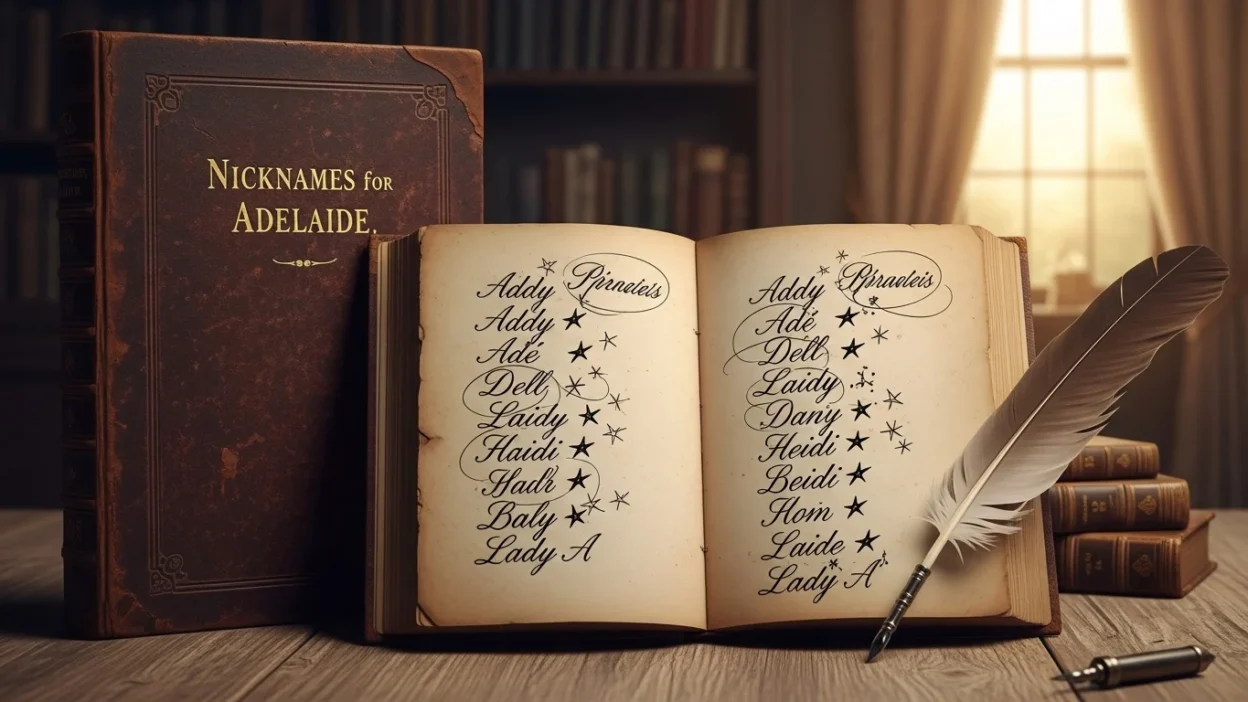 NICKNAMES FOR
ADELAIDE.
Addy
Addy
Adé
Dell
Laidy
Haidi
Baly
Lady A
Addy
Adé
Dell
Laidy
Dany
Heidi
Beidi
Hom
Laide
Lady A